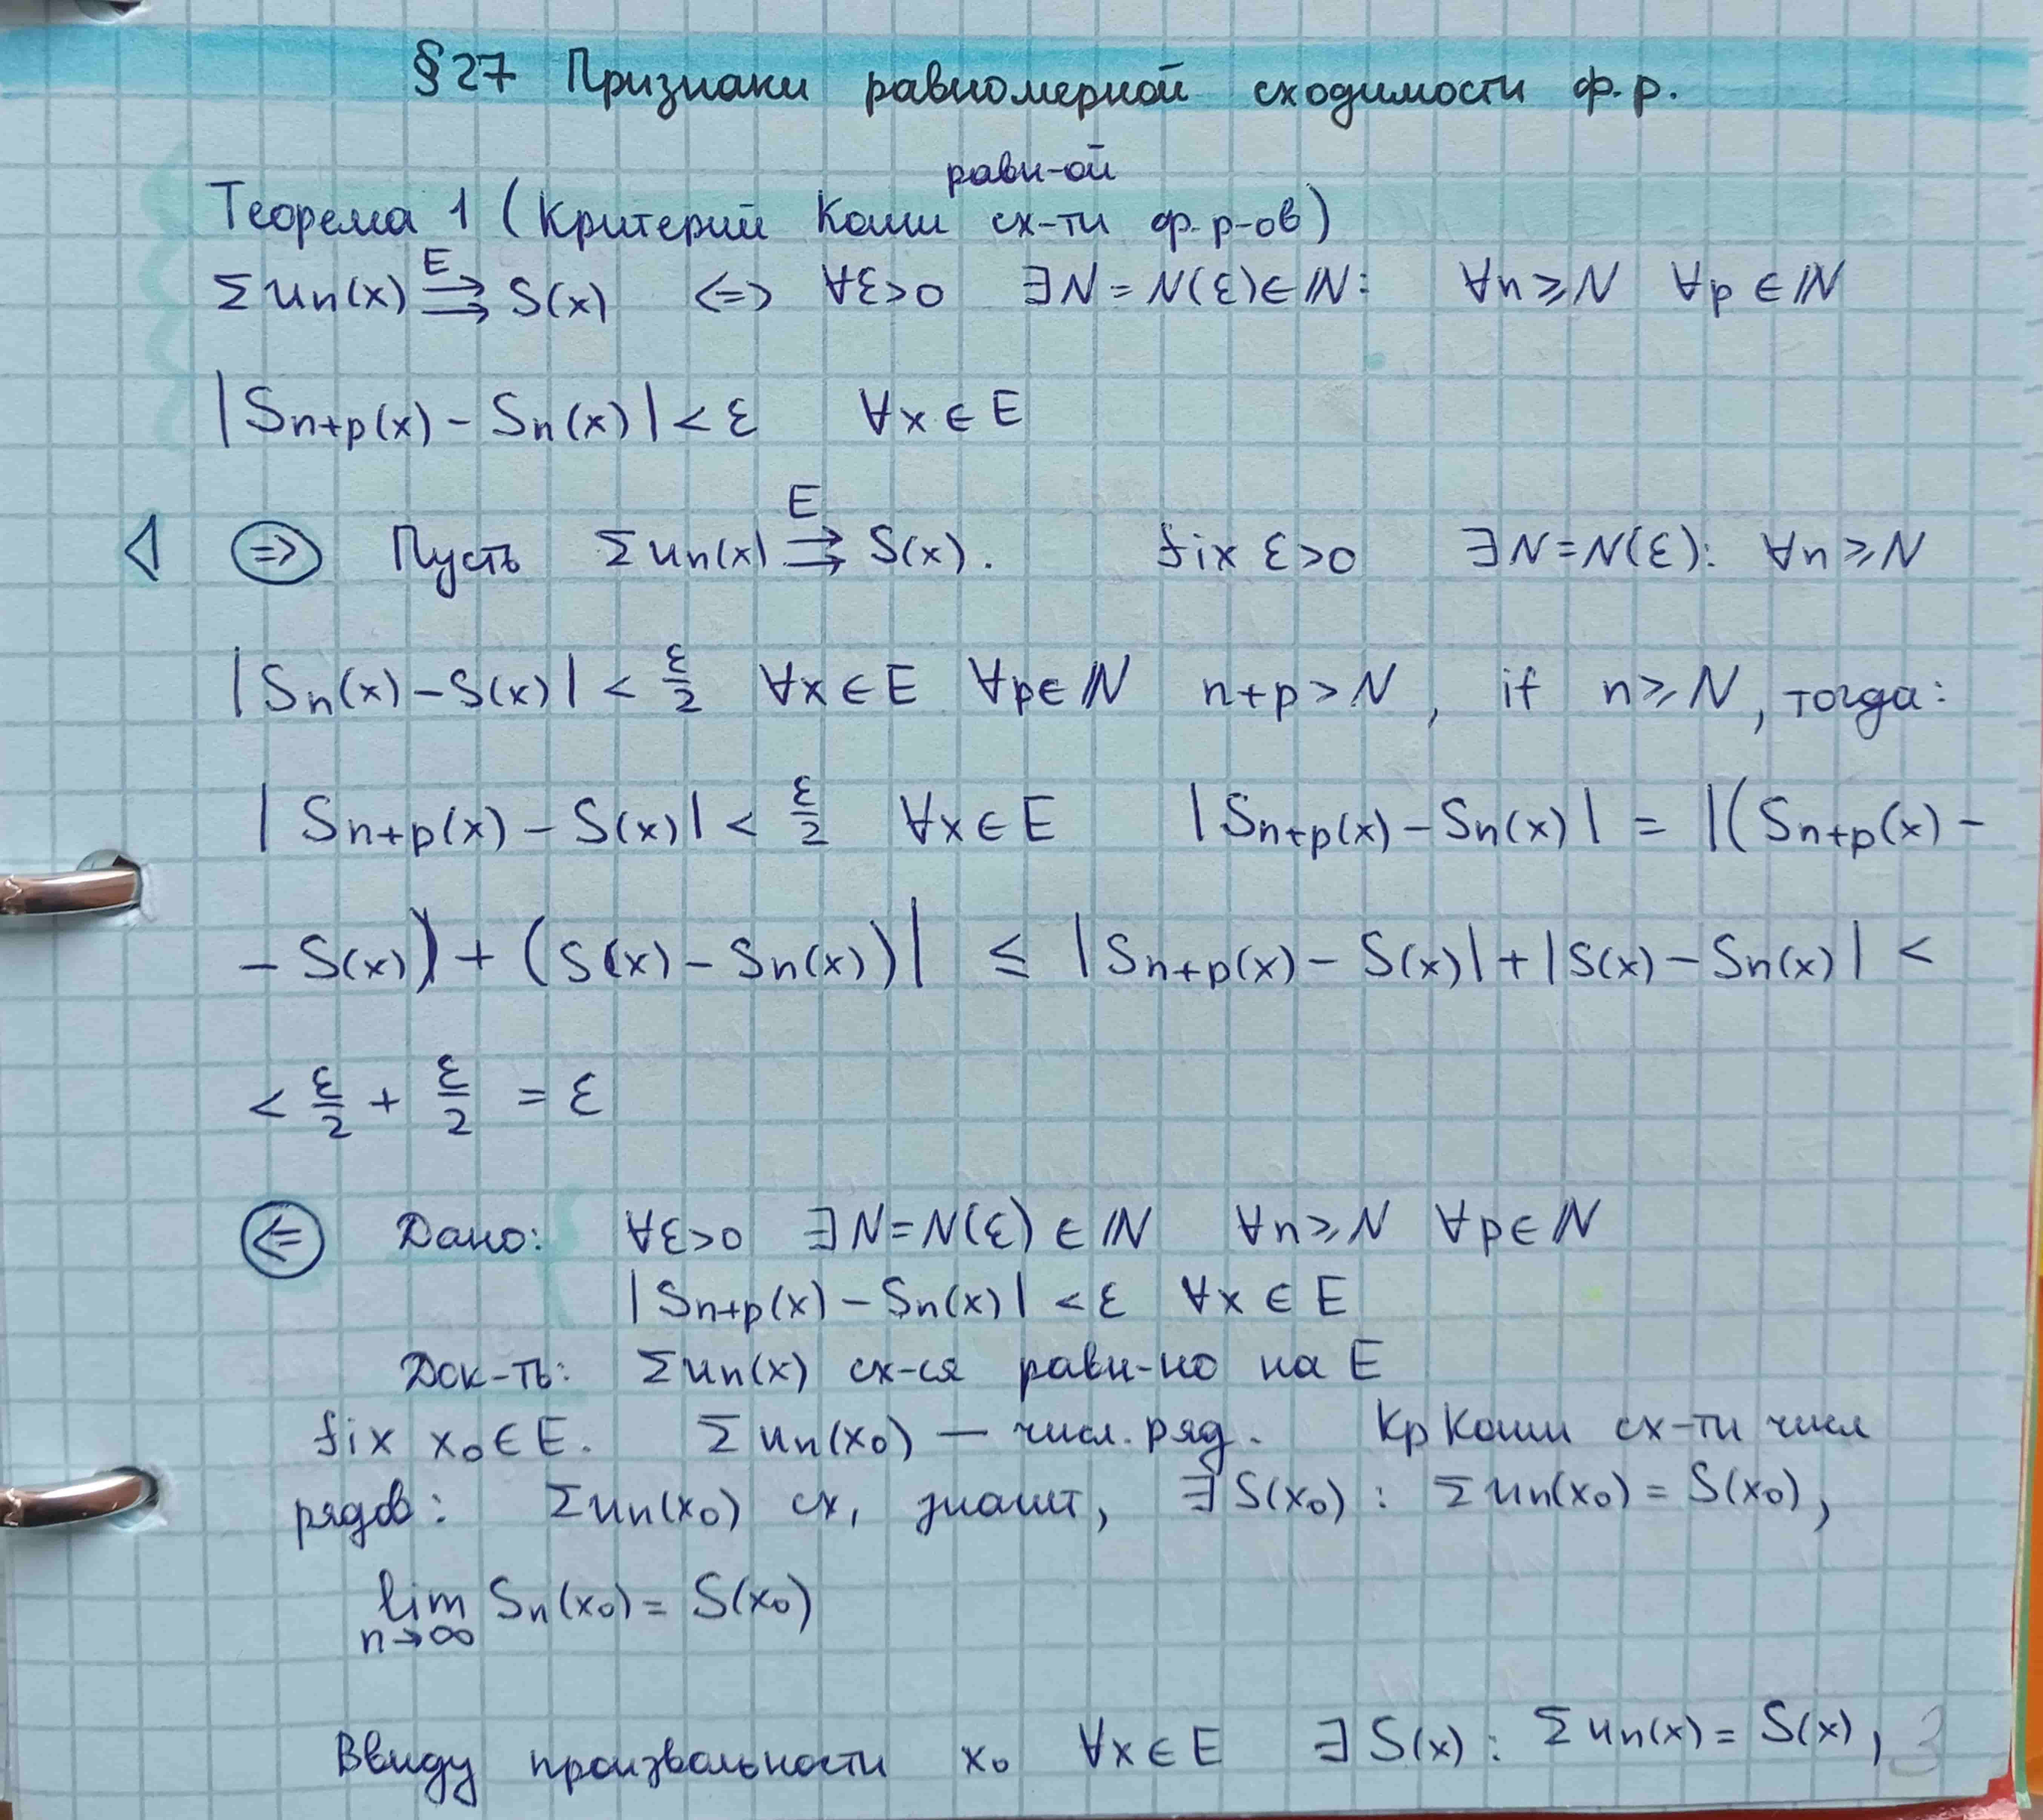 §27 Признаки равномерной сходимости ф.р.
равн-ой
Теорема 1 (Критерий Коши сх-ти ф.р-ов)
Σuₙ(x) ⇉ᴱ S(x) <=> ∀ε>0 ∃N=N(ε)∈ℕ: ∀n⩾N ∀p∈ℕ
|Sₙ₊ₚ(x) - Sₙ(x)| < ε ∀x∈E
◁ (=>) Пусть Σuₙ(x) ⇉ᴱ S(x). fix ε>0 ∃N=N(ε): ∀n⩾N
|Sₙ(x) - S(x)| < ε/2 ∀x∈E ∀p∈ℕ n+p>N, if n⩾N, тогда:
|Sₙ₊ₚ(x) - S(x)| < ε/2 ∀x∈E |Sₙ₊ₚ(x) - Sₙ(x)| = |(Sₙ₊ₚ(x) -
- S(x)) + (S(x) - Sₙ(x))| ≤ |Sₙ₊ₚ(x) - S(x)| + |S(x) - Sₙ(x)| <
< ε/2 + ε/2 = ε
(<=) Дано: ∀ε>0 ∃N=N(ε)∈ℕ ∀n⩾N ∀p∈ℕ
|Sₙ₊ₚ(x) - Sₙ(x)| < ε ∀x∈E
Док-ть: Σuₙ(x) сх-ся равн-но на E
fix x₀∈E. Σuₙ(x₀) — числ. ряд. Кр Коши сх-ти числ
рядов: Σuₙ(x₀) сх, значит, ∃S(x₀): Σuₙ(x₀) = S(x₀),
lim Sₙ(x₀) = S(x₀)
n→∞
Ввиду произвольности x₀ ∀x∈E ∃S(x): Σuₙ(x) = S(x),
3